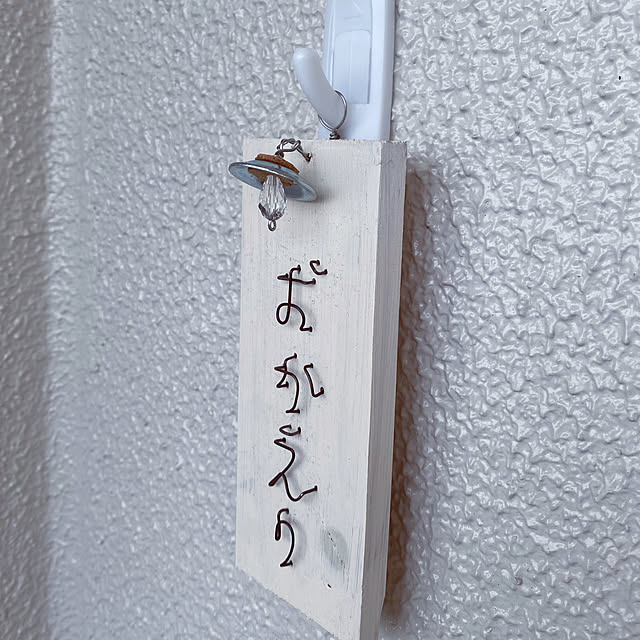 おかえり